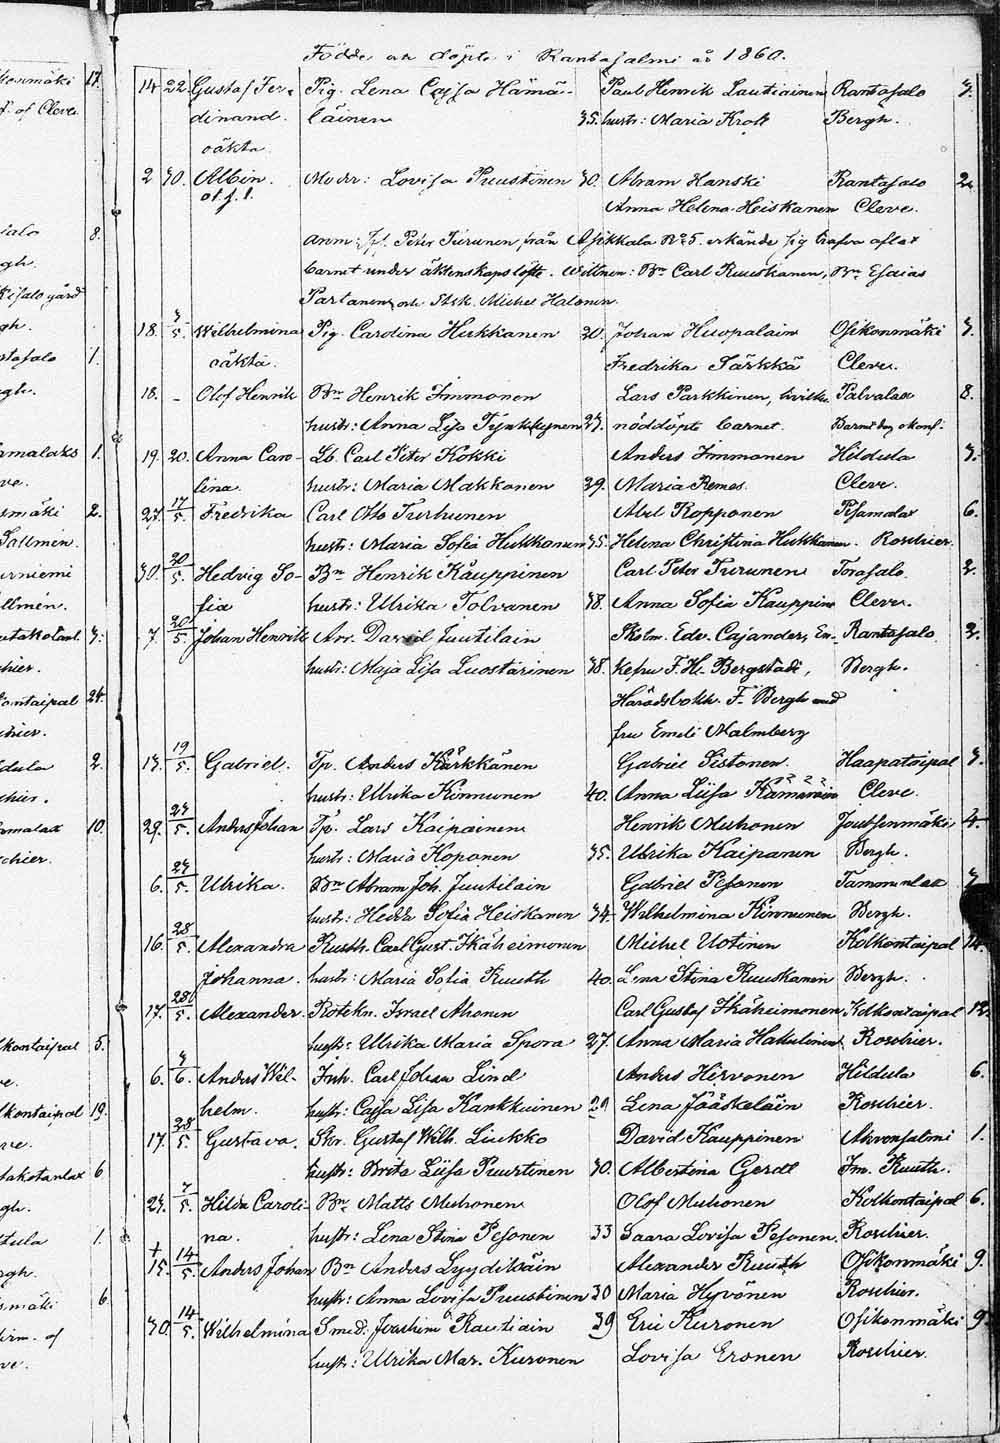 Födde och döpte i Rantasalmi år 1860.
14 22 Gustaf Fer- Pig. Lena Cajsa Hämä- Paul Henrik Lautiainen Rantasalo 3.
dinand. läinen 35. hustr: Maria Kroll Bergh.
oäkta
2 30. Albin. Moder: Lovisa Puustinen 30. Abram Hanski Rantasalo 2.
Anna Helena Heiskanen Cleve.
Anm: Peter Turunen, från Asikkala No 5. erkände sig hafva aflat
barnet under äktenskapslöfte. Wittnen: Bn Carl Ruuskanen, Bn Esaias
Partanen och Michel Halonen.
18. 3/5. Wilhelmina Pig. Carolina Hukkanen 20. Johan Huopalain Osikonmäki 3.
oäkta. Fredrika Särkkä Cleve.
18. - Olof Henrik Bn Henrik Immonen Lars Parkkinen, hvilken Palvalax 8.
hustr: Anna Lisa Tynkkynen 27. nöddöpte barnet.
19. 20. Anna Caro- Lb. Carl Peter Kokki Anders Immonen Hiltula 3.
lina. hustr: Maria Makkonen 39. Maria Remes. Cleve.
27. 17/5. Fredrika Carl Otto Turhunen Abel Ropponen 6.
hustr: Maria Sofia Hukkanen 35. Helena Christina Hukkanen. Roschier.
30. 20/5. Hedvig So- Bn Henrik Kauppinen Carl Peter Turunen Torasalo. 2.
fia hustr: Ulrika Tolvanen 38. Anna Sofia Kauppin Cleve.
7 20/5. Johan Henrik Arr. David Juutilain Skolm. Edv. Cajander, En- Rantasalo 2.
hustr: Maja Lisa Luostarinen 38. kefru F. H. Bergstadi, Bergh.
Häradsbokh. F. Bergh och
fru Emeli Malmberg
13. 19/5. Gabriel. Tp. Anders Kärkkänen Gabriel Sistonen. Haapataipal 3.
hustr: Ulrika Kinnunen 40. Anna Liisa Cleve.
29. 27/5. Anders Johan Tp. Lars Kaipainen Henrik Muhonen Joutsenmäki 4.
hustr: Maria Koponen 35. Ulrika Kaipanen Bergh.
6. 27/5. Ulrika. Bn Abram Joh. Juutilain Gabriel Pesonen 3
hustr: Hedda Sofia Heiskanen 34. Wilhelmina Kinnunen Bergh.
16. 28/5. Alexandra Rusth. Carl Gust. Ikäheimonen Michel Uotinen Kolkontaipal 14.
Johanna. hustr: Maria Sofia Ruuth 40. Lena Stina Ruuskanen Bergh.
17. 28/5. Alexander. Rotekn. Israel Ahonen Carl Gustaf Ikäheimonen Kolkontaipal 12.
hustr: Ulrika Maria Spora 27. Anna Maria Hallulinen Roschier.
6. 3/6. Anders Wil- Inh. Carl Johan Lind Anders Hirvonen Hiltula 6.
helm. hustr: Cajsa Lisa Kankkuinen 29 Lena Jääskeläin Roschier.
17. 28/5. Gustava. Skr. Gustaf Wilh. Liukko David Kauppinen Ahvensalmi 1.
hustr: Brita Liisa Puurtinen 30. Albertina Gerdt Im. Ruuth.
23. 7/5. Hilda Caroli- Bn Matts Muhonen Olof Muhonen Kolkontaipal 6.
na. hustr: Lena Stina Pesonen 33 Saara Lovisa Pesonen. Roschier.
† 15. 14/5. Anders Johan Bn Anders Lyydikäin Alexander Ruuth Osikonmäki 9.
hustr: Anna Lovisa Puustinen 30 Maria Hyvönen Roschier.
30. 14/5. Wilhelmina Smed: Joachim Rautiain 39 Eric Kuronen Osikonmäki 9.
hustr: Ulrika Mar. Kuronen Lovisa Eronen Roschier.